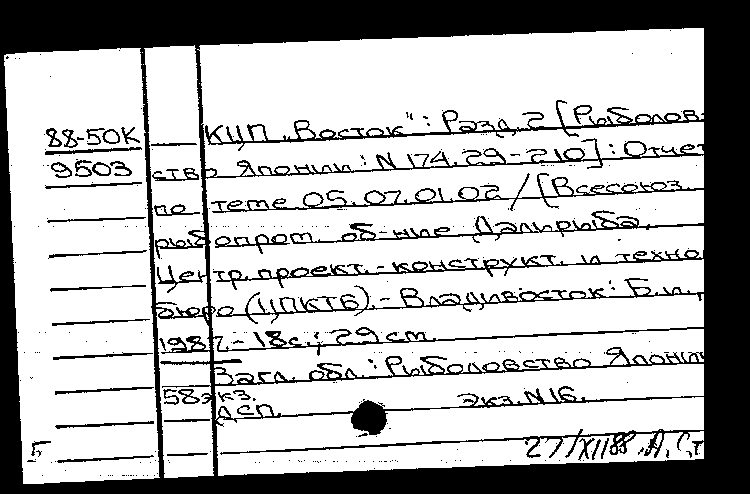 88-50К КЦП „Восток": Разд. 2 [Рыболов-
9503 ство Японии: N 174.29-210]: Отчет
по теме 05.07.01.02 / [Всесоюз.
рыбопром. об-ние Дальрыба.
Центр. проект.-конструкт. и техно
бюро (ЦПКТБ).- Владивосток: Б.и.,
1987.- 18с.; 29 см.
Загл. обл.: Рыболовство Японии
58 экз.
ДСП. Экз. N 16.
5 27/XII88. А. Ст